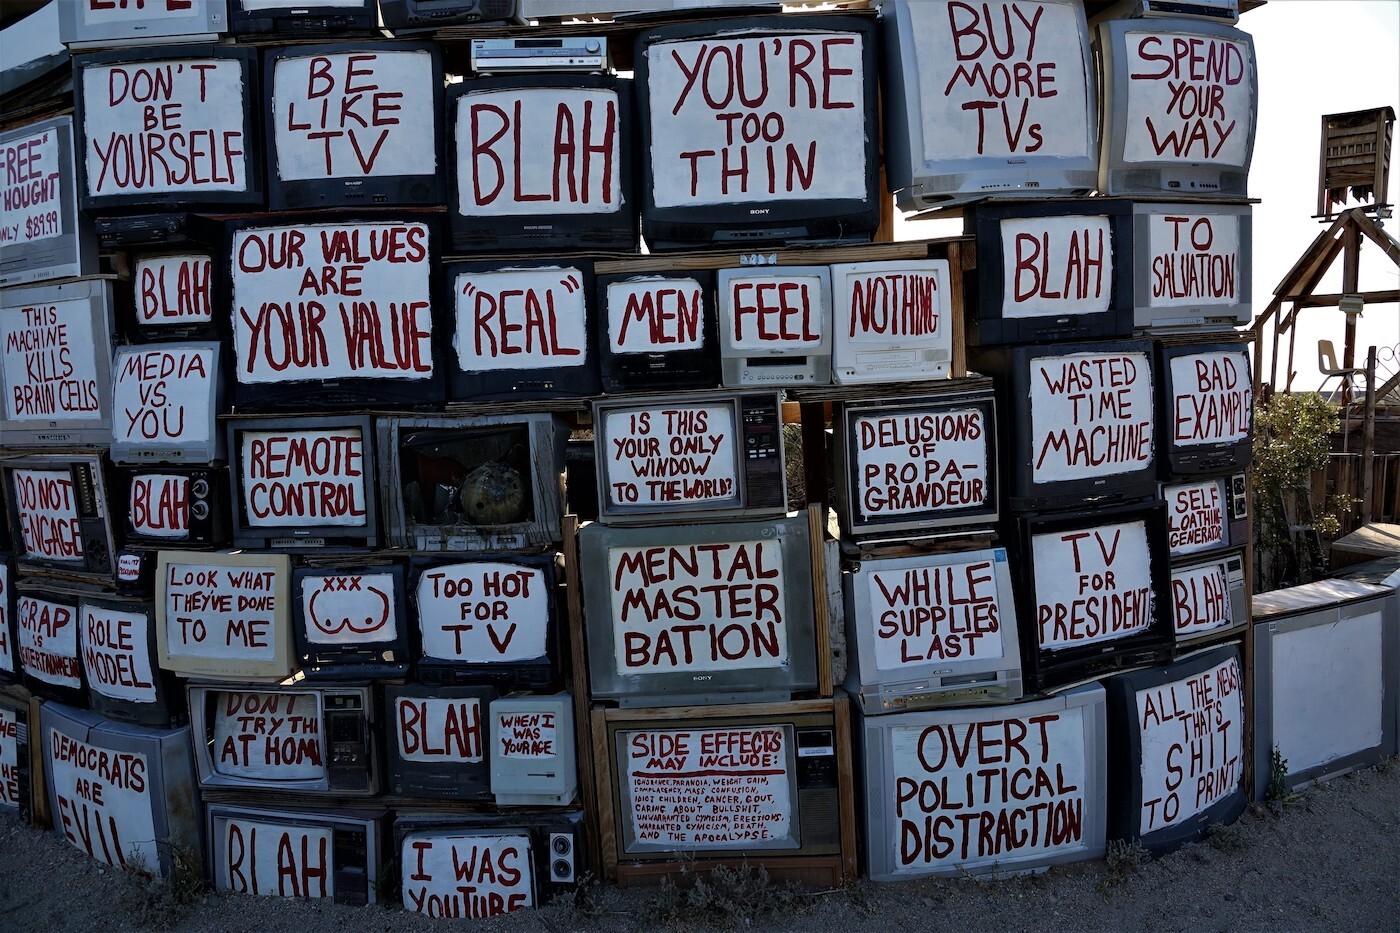 LIFE
DON'T
BE
YOURSELF
BE
LIKE
TV
BLAH
YOU'RE
TOO
THIN
SONY
BUY
MORE
TVs
SPEND
YOUR
WAY
"FREE"
THOUGHT
ONLY $89.99
BLAH
OUR VALUES
ARE
YOUR VALUE
"REAL"
MEN
FEEL
NOTHING
BLAH
TO
SALVATION
THIS
MACHINE
KILLS
BRAIN CELLS
MEDIA
VS.
YOU
REMOTE
CONTROL
IS THIS
YOUR ONLY
WINDOW
TO THE WORLD?
DELUSIONS
OF
PROPA-
GRANDEUR
WASTED
TIME
MACHINE
BAD
EXAMPLE
DO NOT
ENGAGE
BLAH
SELF
LOATHING
GENERATOR
LOOK WHAT
THEY'VE DONE
TO ME
XXX
TOO HOT
FOR
TV
MENTAL
MASTER
BATION
SONY
WHILE
SUPPLIES
LAST
TV
FOR
PRESIDENT
BLAH
CRAP
IS
ENTERTAINMENT
ROLE
MODEL
DON'T
TRY THI
AT HOME
BLAH
WHEN I
WAS
YOUR AGE
SIDE EFFECTS
MAY INCLUDE:
IGNORANCE, PARANOIA, WEIGHT GAIN,
COMPLACENCY, MASS CONFUSION,
IDIOT CHILDREN, CANCER, GOUT,
CARING ABOUT BULLSHIT,
UNWARRANTED CYNICISM, ERECTIONS,
WARRANTED CYNICISM, DEATH,
AND THE APOCALYPSE.
OVERT
POLITICAL
DISTRACTION
ALL THE NEWS
THAT'S
SHIT
TO PRINT
DEMOCRATS
ARE
EVIL
BLAH
I WAS
YOUTUBE